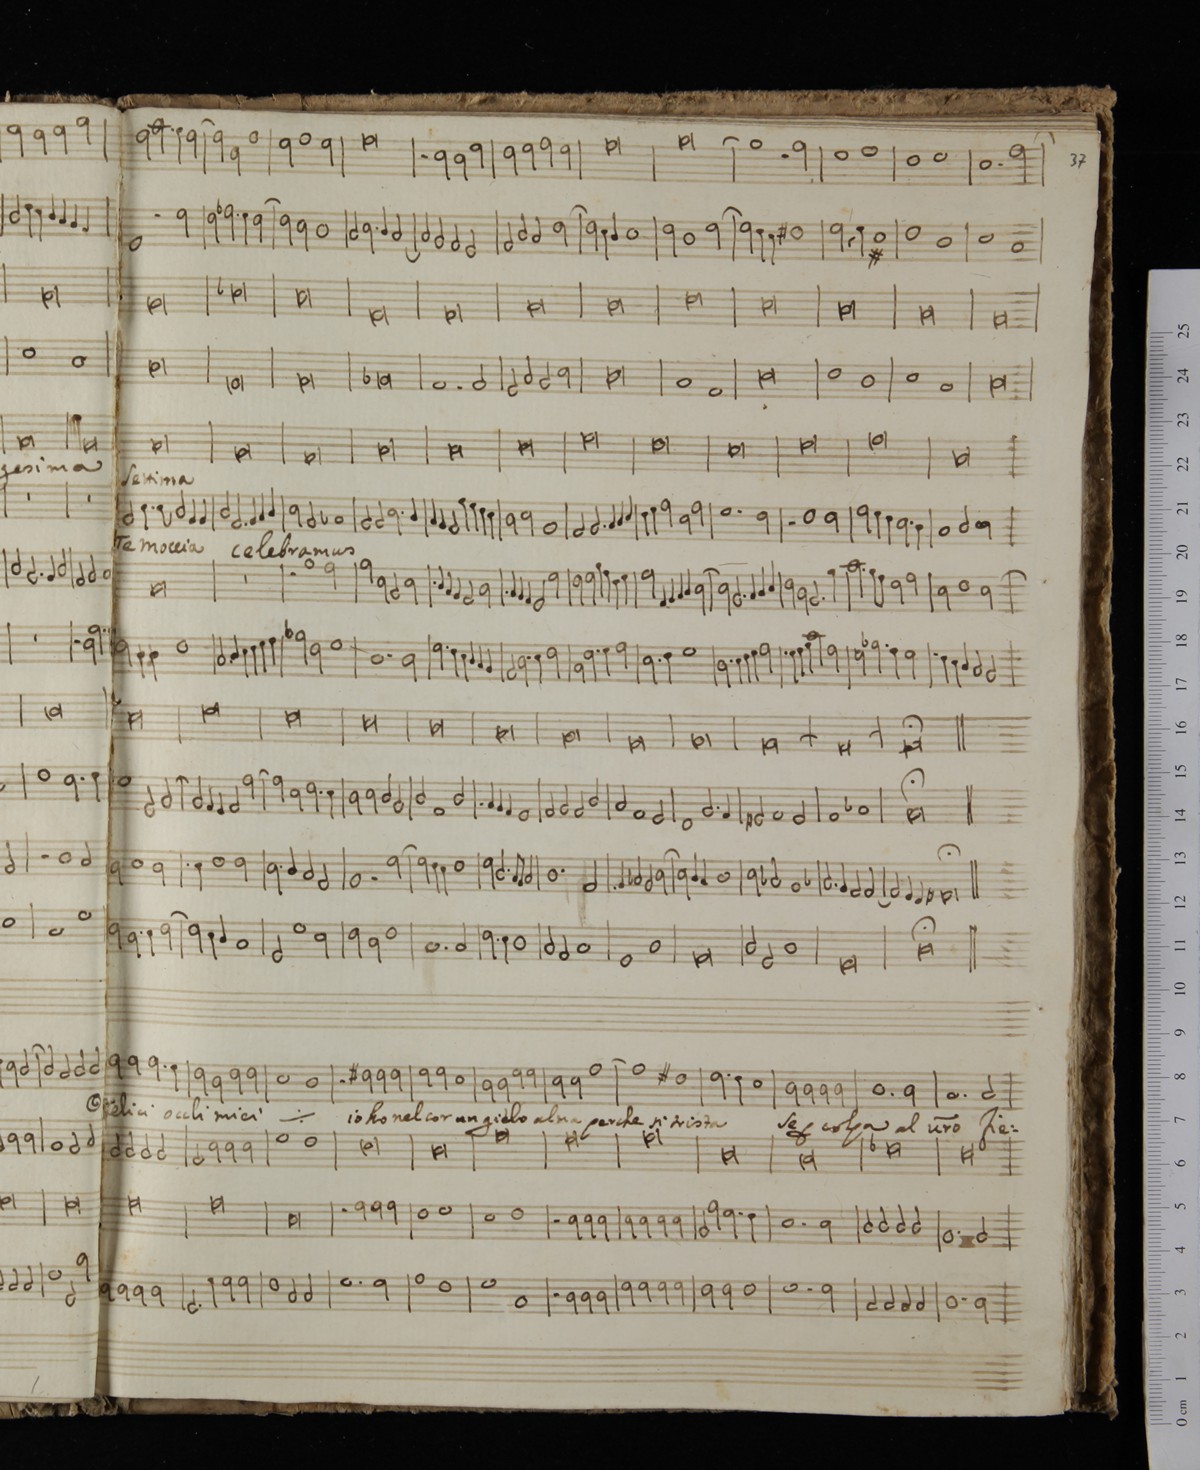 37
gesima
Septima
celebramus
felici occhi miei io ho nel cor un gielo alma perche si trista se colpa al vro fie:
25
24
23
22
21
20
19
18
17
16
15
14
13
12
11
10
9
8
7
6
5
4
3
2
1
0 cm